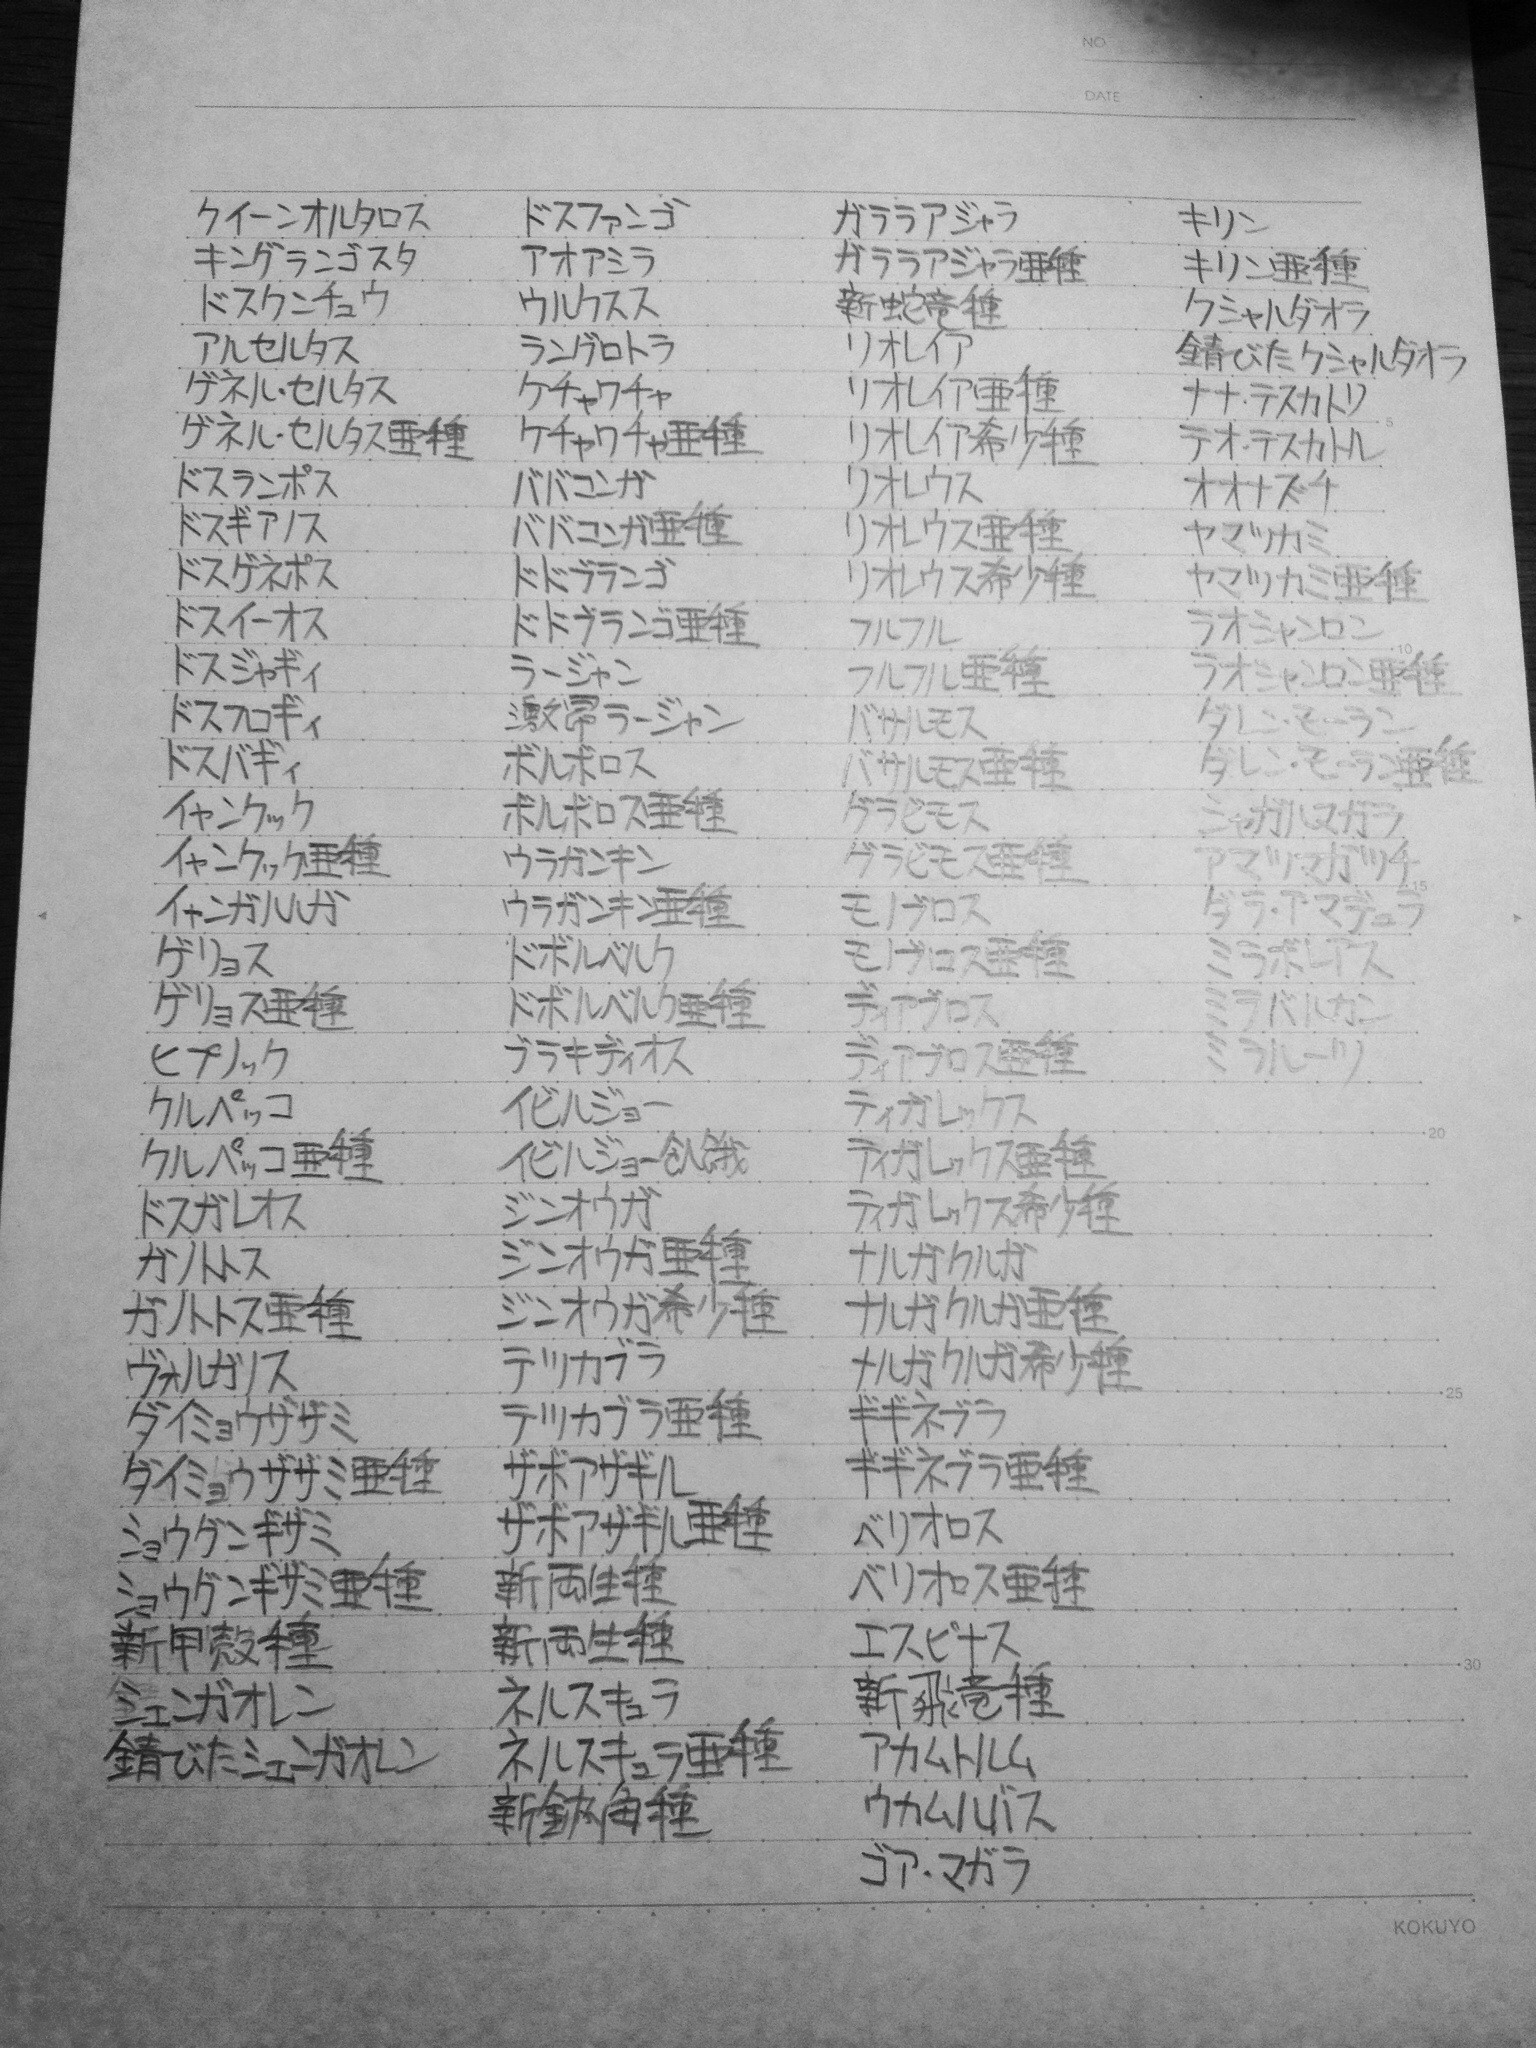 NO
DATE
クイーンオルタロス
キングランゴスタ
ドスクンチュウ
アルセルタス
ゲネル・セルタス
ゲネル・セルタス亜種
ドスランポス
ドスギアノス
ドスゲネポス
ドスイーオス
ドスジャギィ
ドスフロギィ
ドスバギィ
イャンクック
イャンクック亜種
イャンガルルガ
ゲリョス
ゲリョス亜種
ヒプノック
クルペッコ
クルペッコ亜種
ドスガレオス
ガノトトス
ガノトトス亜種
ヴォルガノス
ダイミョウザザミ
ダイミョウザザミ亜種
ショウグンギザミ
ショウグンギザミ亜種
新甲殻種
シェンガオレン
錆びたシェンガオレン
ドスファンゴ
アオアシラ
ウルクスス
ラングロトラ
ケチャワチャ
ケチャワチャ亜種
ババコンガ
ババコンガ亜種
ドドブランゴ
ドドブランゴ亜種
ラージャン
激昂ラージャン
ボルボロス
ボルボロス亜種
ウラガンキン
ウラガンキン亜種
ドボルベルク
ドボルベルク亜種
ブラキディオス
イビルジョー
イビルジョー飢餓
ジンオウガ
ジンオウガ亜種
ジンオウガ希少種
テツカブラ
テツカブラ亜種
ザボアザギル
ザボアザギル亜種
新両生種
新両生種
ネルスキュラ
ネルスキュラ亜種
新鋏角種
ガララアジャラ
ガララアジャラ亜種
新蛇竜種
リオレイア
リオレイア亜種
リオレイア希少種
リオレウス
リオレウス亜種
リオレウス希少種
フルフル
フルフル亜種
バサルモス
バサルモス亜種
グラビモス
グラビモス亜種
モノブロス
モノブロス亜種
ディアブロス
ディアブロス亜種
ティガレックス
ティガレックス亜種
ティガレックス希少種
ナルガクルガ
ナルガクルガ亜種
ナルガクルガ希少種
ギギネブラ
ギギネブラ亜種
ベリオロス
ベリオロス亜種
エスピナス
新飛竜種
アカムトルム
ウカムルバス
ゴア・マガラ
キリン
キリン亜種
クシャルダオラ
錆びたクシャルダオラ
ナナ・テスカトリ
テオ・テスカトル
オオナズチ
ヤマツカミ
ヤマツカミ亜種
ラオシャンロン
ラオシャンロン亜種
ダレン・モーラン
ダレン・モーラン亜種
シャガルマガラ
アマツマガツチ
ダラ・ア・マデュラ
ミラボレアス
ミラバルカン
ミラルーツ
5
10
15
20
25
30
KOKUYO